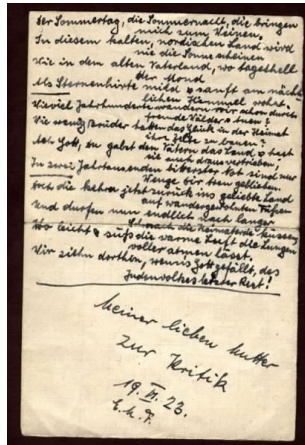 Der Sommertag, die Sommernacht, die bringen
mich zum Weinen.
In diesem kalten, nordischen Land wird
nie die Sonne scheinen
Wie in dem alten Vaterland, wo tageshell
der Mond
Als Sternenhirte mild & sanft am nächt-
lichen Himmel wohnt.
Wieviel Jahrhunderte wandern wir schon durch
fremde Wälder & Auen?
Wie wenig Brüder haben das Glück in der Heimat
ihr Zelte zu bauen!
Ach Gott, du gabst den Vätern das Land & hast
sie auch draus vertrieben;
In zwei Jahrtausenden bitterster Not sind nur
Wenige dir treu geblieben.
Doch die kehren jetzt zurück ins geliebte Land
auf wandergewohnten Füßen
Und dürfen nun endlich nach langer
Schmach die Heimaterde küssen
Wo leicht & süß die warme Luft die Lungen
voller atmen lässt.
Wir ziehn dorthin, wenns Gott gefällt, des
Judenvolkes letzter Rest!
Meiner lieben Mutter
zur Kritik
19. VI. 23.
E. M. F.